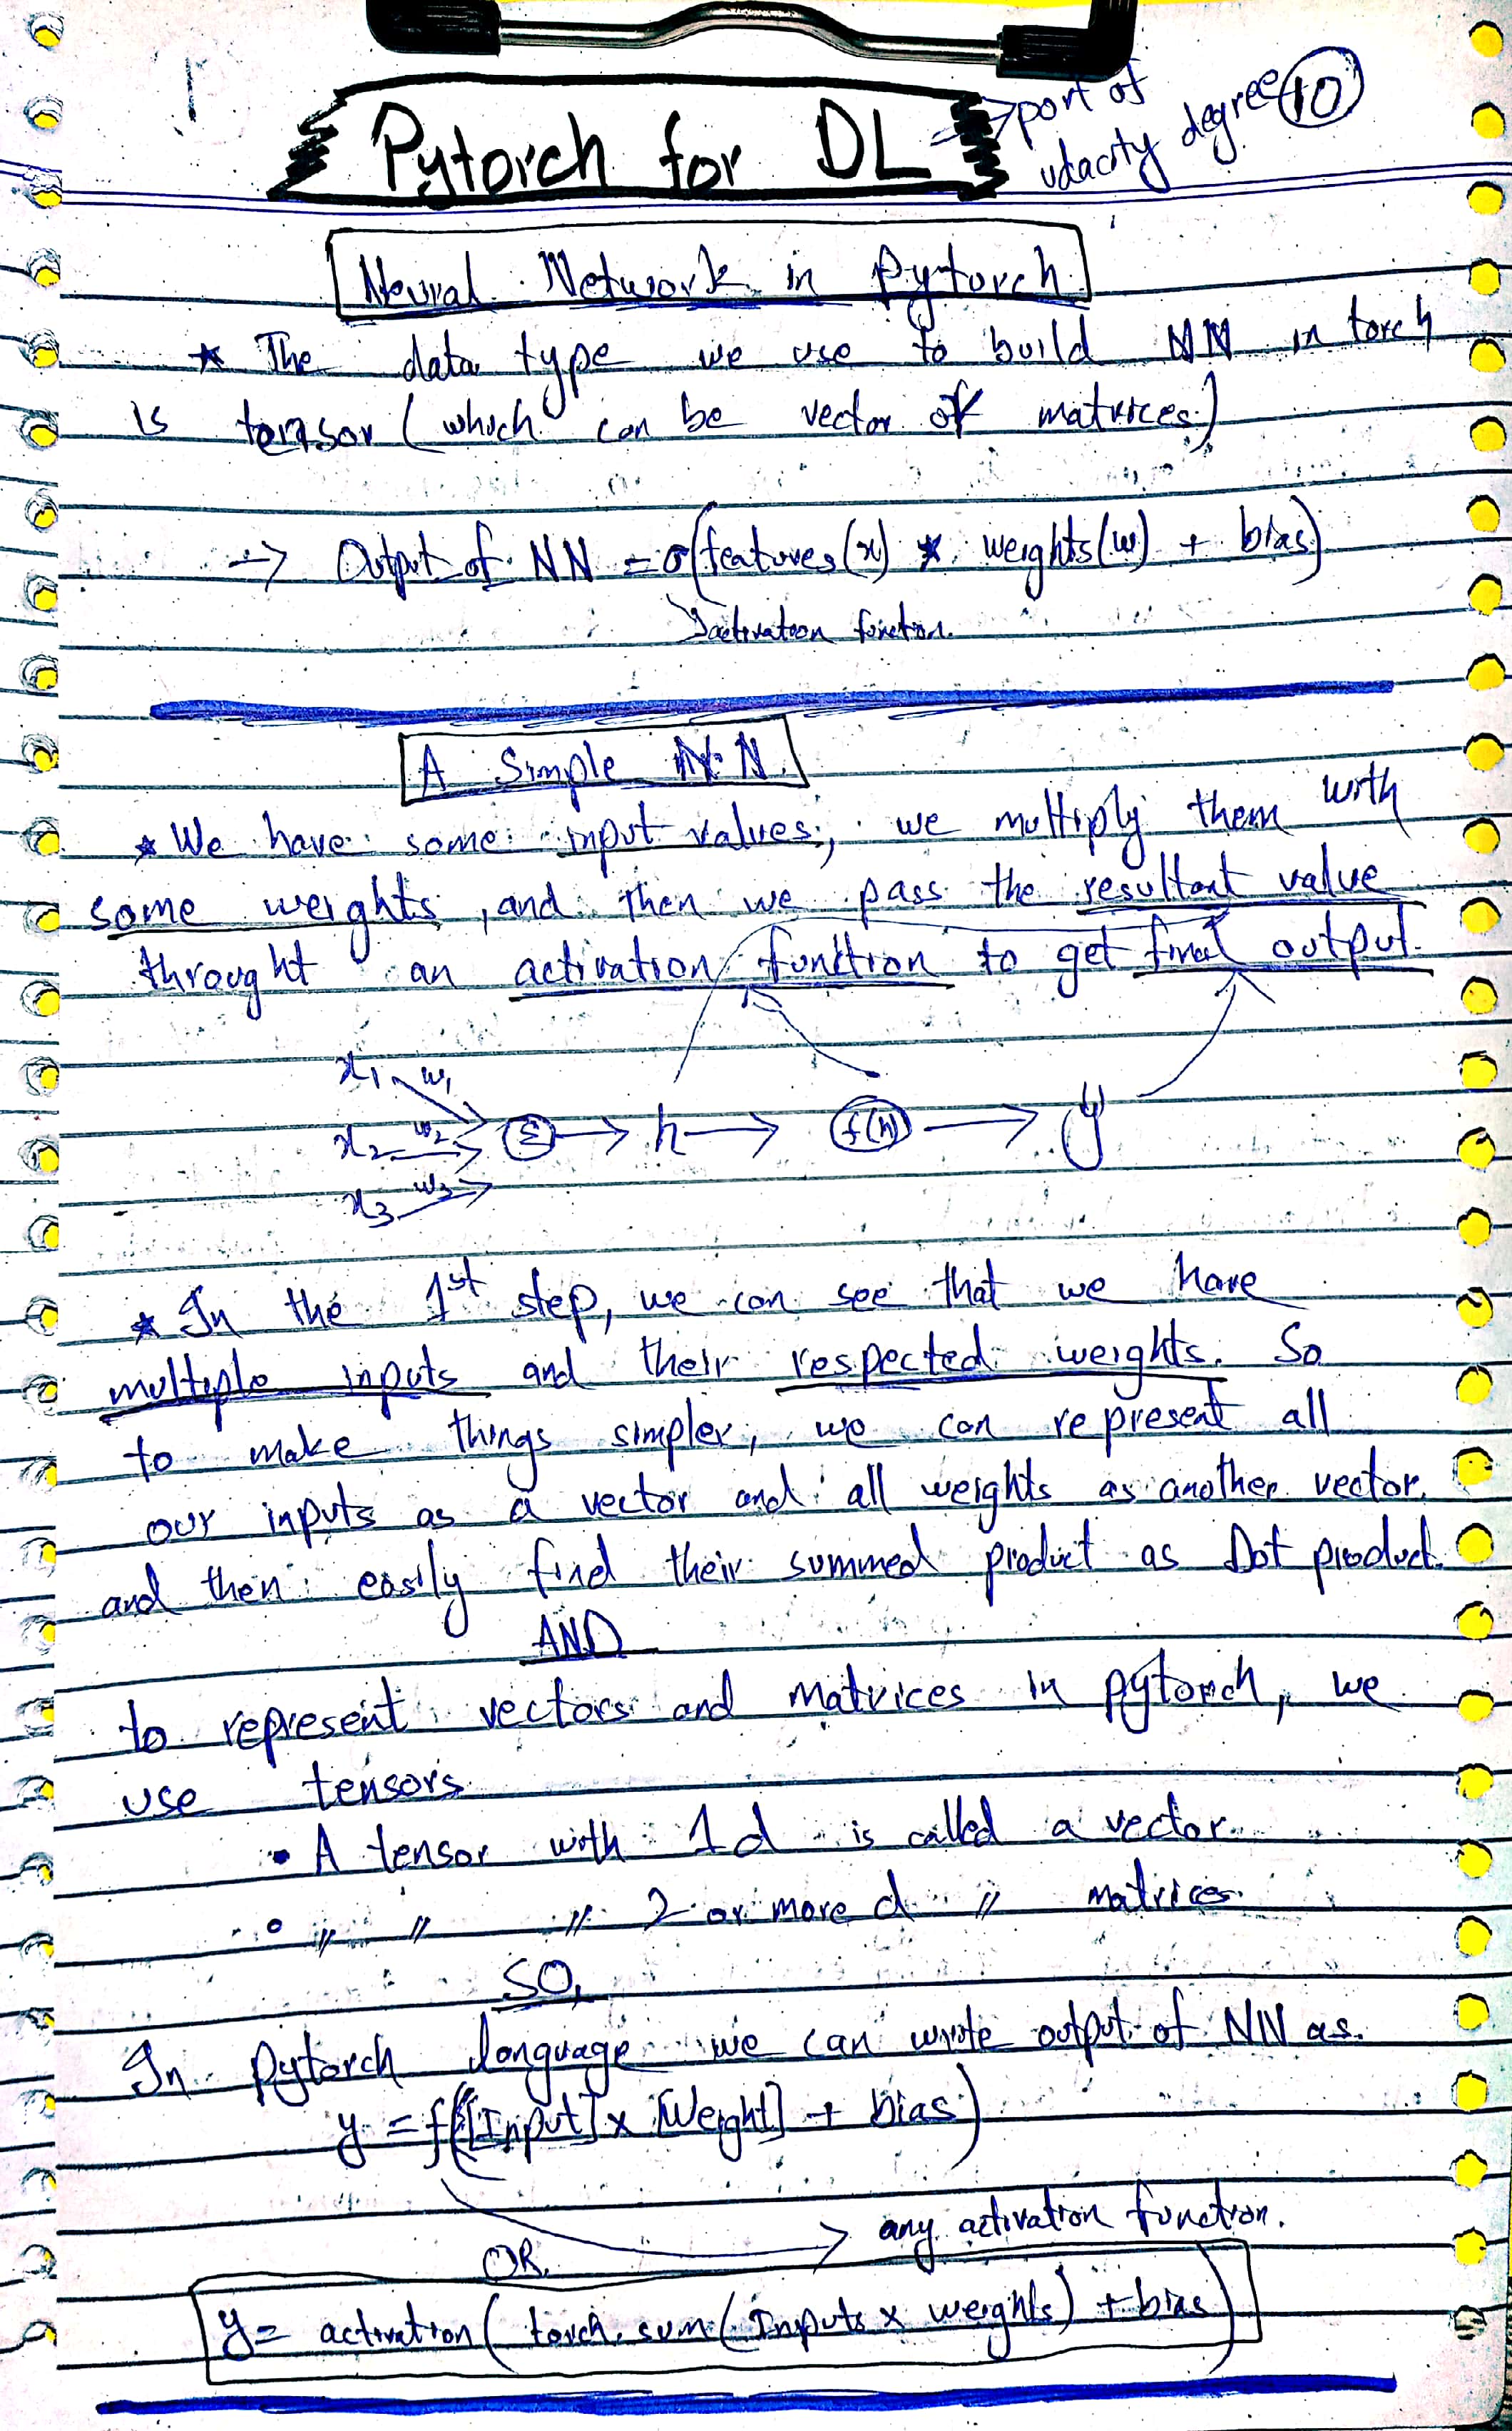 Pytorch for DL
→ part of
udacity degree
10
Neural Network in Pytorch
* The data type we use to build NN in torch
is tensor (which can be vector or matrices)
→ Output of NN = σ(features(x) * weights(w) + bias)
activation function.
A Simple N.N.
* We have some input values, we multiply them with
some weights, and then we pass the resultant value
throught an activation function to get final output.
x1 w1
x2 w2 → Σ → h → f(h) → y
x3 w3
* In the 1st step, we can see that we have
multiple inputs and their respected weights. So
to make things simpler, we can represent all
our inputs as a vector and all weights as another vector.
and then easily find their summed product as Dot product.
AND
to represent vectors and matrices in pytorch, we
use tensors
• A tensor with 1d is called a vector
• " " " 2 or more d " matrices
SO,
In Pytorch language we can write output of NN as.
y = f([Input] x [Weight] + bias)
→ any activation function.
OR
y = activation(torch.sum(Inputs x weights) + bias)